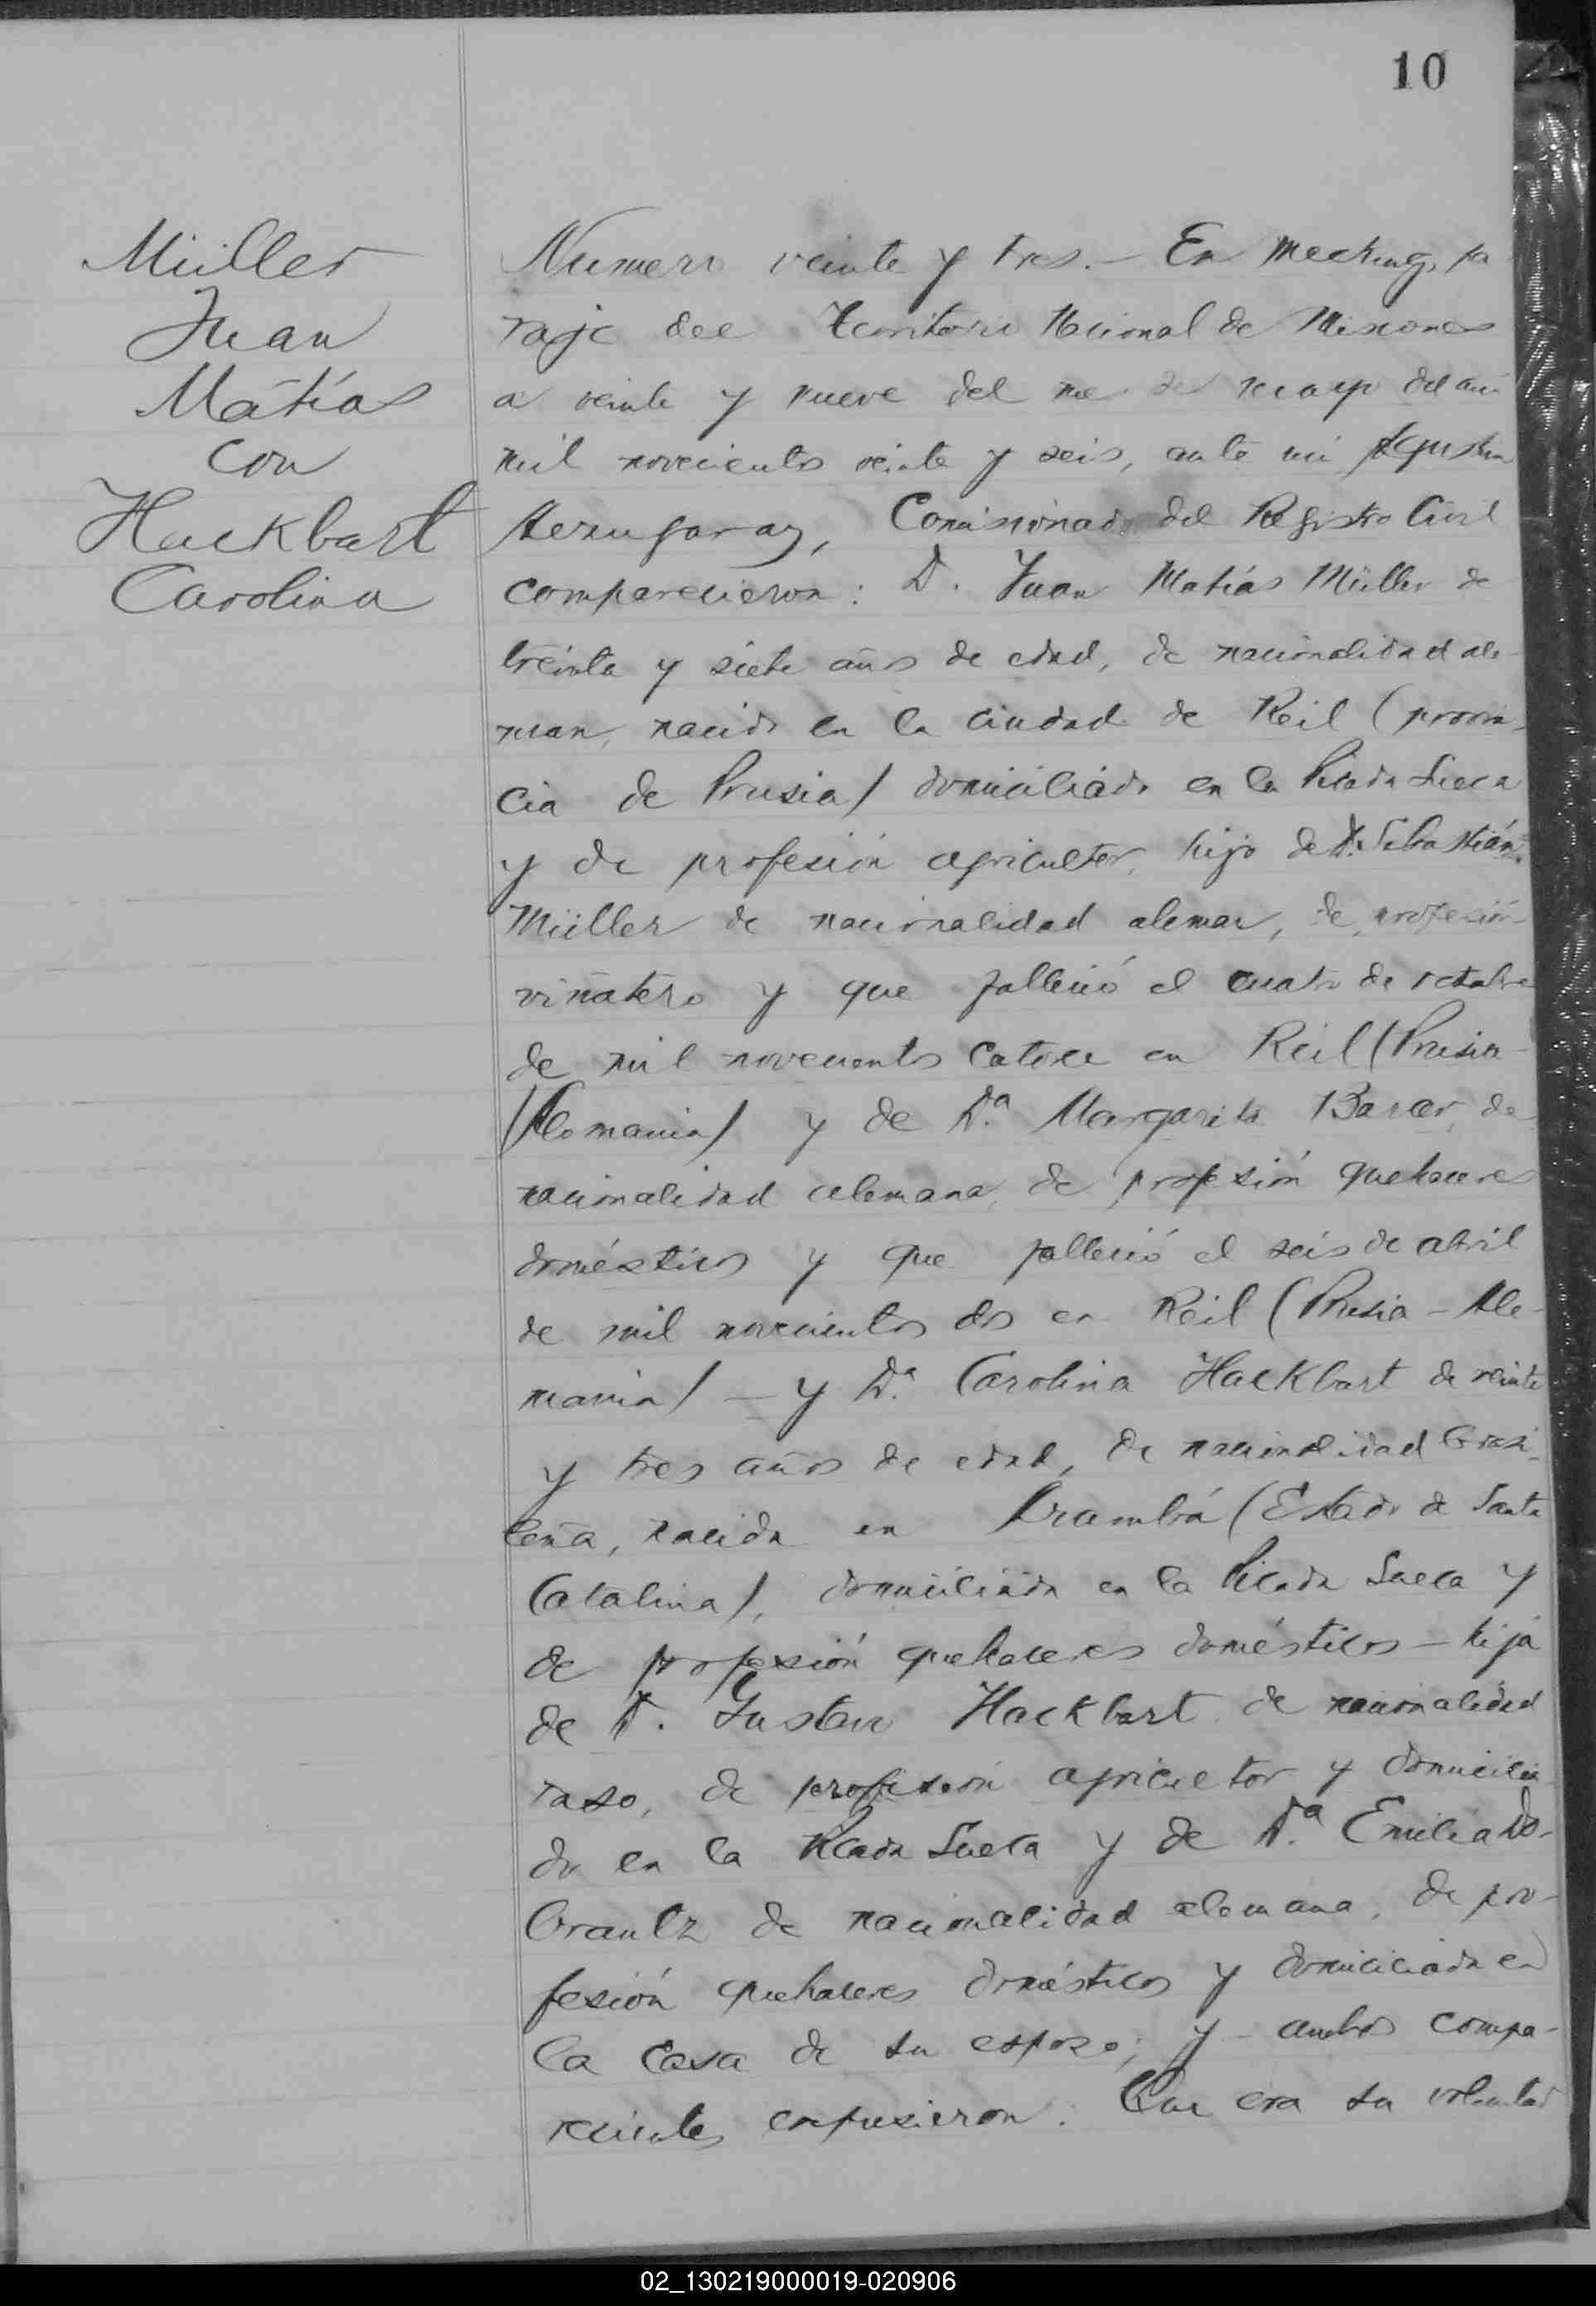 10
Müller
Juan
Matías
con
Hackbart
Carolina
Numero veinte y tres. — En Mecking, pa
raje del Territorio Nacional de Misiones
a veinte y nueve del mes de mayo del año
mil novecientos veinte y seis, ante mi Agustin
Comisionado del Registro Civil
comparecieron: D. Juan Matías Müller de
treinta y siete años de edad, de nacionalidad ale-
man, nacido en la ciudad de Reil (provin-
cia de Prusia) domiciliado en la Picada Sueca
y de profesión agricultor, hijo de D. Sebastián
Müller de nacionalidad aleman, de profesión
viñatero y que falleció el cuatro de octubre
de mil novecientos catorce en Reil (Prusia-
Alemania) y de Da. Margarita de
nacionalidad alemana, de profesión quehaceres
domésticos y que falleció el seis de abril
de mil novecientos dos en Reil (Prusia - Ale-
mania) — y Da. Carolina Hackbart de veinte
y tres años de edad, de nacionalidad brasi-
leña, nacida en (Estado de Santa
Catalina), domiciliada en la Picada Sueca y
de profesión quehaceres domésticos — hija
de D. Gustavo Hackbart de nacionalidad
ruso, de profesión agricultor y domicilia-
do en la Picada Sueca y de Da. Emilia Do-
brantz de nacionalidad alemana, de pro-
fesión quehaceres domésticos y domiciliada en
la casa de su esposo; y ambos compa-
recientes expusieron: Que era su voluntad
02_130219000019-020906